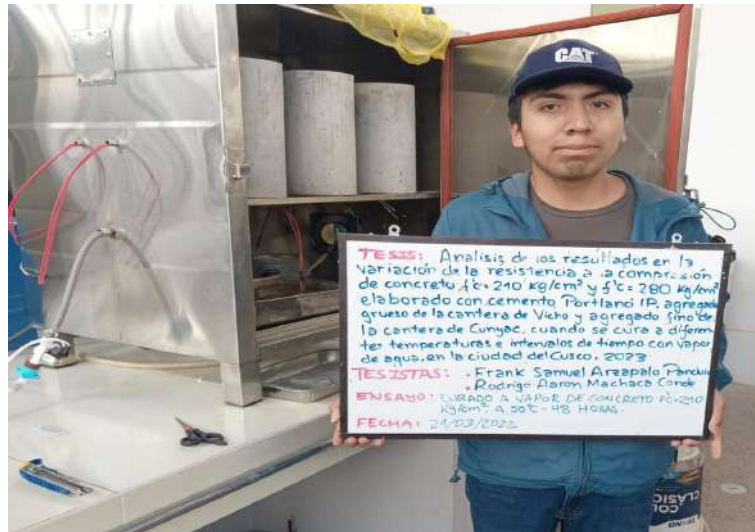 CAT
TESIS: Analisis de los resultados en la
variación de la resistencia a la compresión
de concreto f'c=210 kg/cm² y f'c=280 kg/cm²
elaborado con cemento Portland IP, agregado
grueso de la cantera de Vicho y agregado fino de
la cantera de Cunyac, cuando se cura a diferen
tes temperaturas e intervalos de tiempo con vapor
de agua, en la ciudad del Cusco, 2023
TESISTAS: . Frank Samuel Arzapalo
. Rodrigo Aaron Machaca Conde
ENSAYO: CURADO A VAPOR DE CONCRETO F'C=210
kg/cm² A 50°C - 48 HORAS.
FECHA: 21/03/2022
CLÁSIC